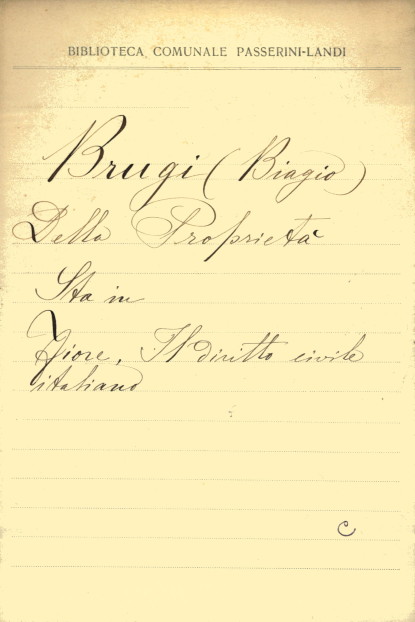 BIBLIOTECA COMUNALE PASSERINI-LANDI
Brugi (Biagio)
Della Proprietà
Sta in
Fiore, Il diritto civile
italiano
C